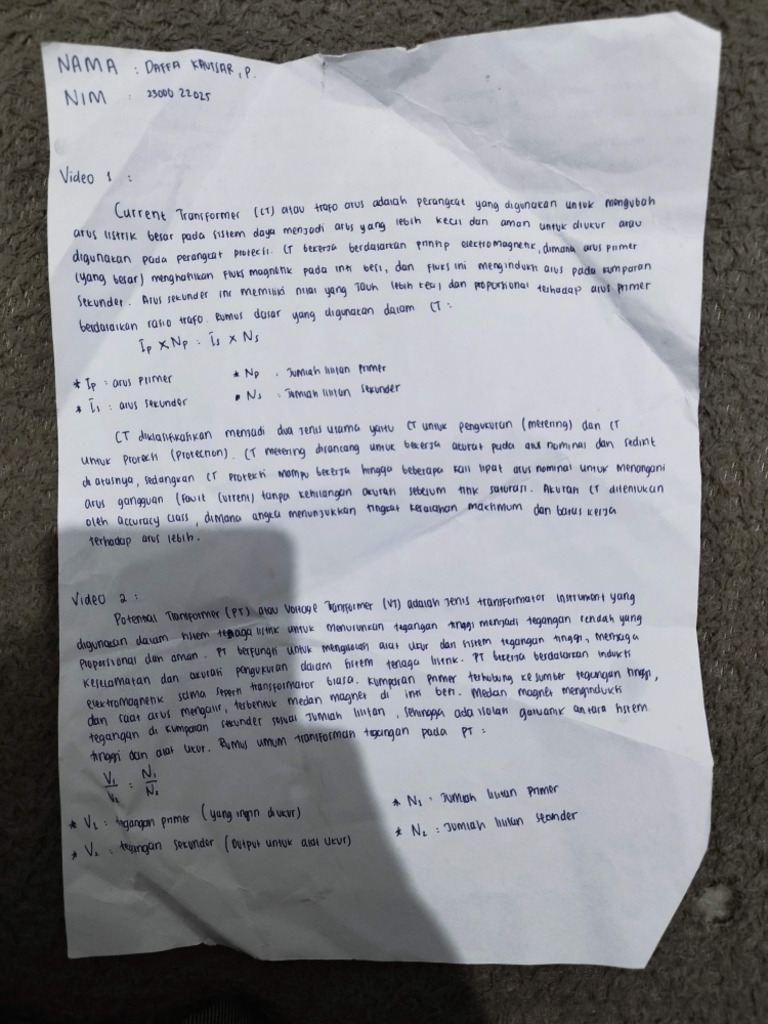 NAMA : DAFFA KAUTSAR .P.
NIM : 23000 22025
Video 1 :
Current Transformer (CT) atau trafo arus adalah perangkat yang digunakan untuk mengubah
arus listrik besar pada sistem daya menjadi arus yang lebih kecil dan aman untuk diukur atau
digunakan pada perangkat proteksi. CT bekerja berdasarkan prinsip electromagnetic, dimana arus primer
(yang besar) menghasilkan fluks magnetik pada inti besi, dan fluks ini menginduksi arus pada kumparan
sekunder. Arus sekunder ini memiliki nilai yang jauh lebih kecil dan proporsional terhadap arus primer
berdasarkan rasio trafo. Rumus dasar yang digunakan dalam CT :
Ip x Np = Is x Ns
* Ip : arus primer * Np : Jumlah lilitan primer
* Is : arus sekunder * Ns : Jumlah lilitan sekunder
CT diklasifikasikan menjadi dua jenis utama yaitu CT untuk pengukuran (metering) dan CT
untuk proteksi (protection). CT metering dirancang untuk bekerja akurat pada arus nominal dan sedikit
di atasnya, sedangkan CT proteksi mampu bekerja hingga beberapa kali lipat arus nominal untuk menangani
arus gangguan (fault current) tanpa kehilangan akurasi sebelum titik saturasi. Akurasi CT ditentukan
oleh accuracy class, dimana angka menunjukkan tingkat kesalahan maksimum dan batas kerja
terhadap arus lebih.
Video 2 :
Potensial Transformer (PT) atau Voltage Transformer (VT) adalah jenis transformator instrument yang
digunakan dalam sistem tenaga listrik untuk menurunkan tegangan tinggi menjadi tegangan rendah yang
proporsional dan aman. PT berfungsi untuk mengisolasi alat ukur dari sistem tegangan tinggi, menjaga
keselamatan dan akurasi pengukuran dalam sistem tenaga listrik. PT bekerja berdasarkan induksi
elektromagnetik sama seperti transformator biasa. Kumparan primer terhubung ke sumber tegangan tinggi,
dan saat arus mengalir, terbentuk medan magnet di inti besi. Medan magnet menginduksi
tegangan di kumparan sekunder sesuai jumlah lilitan, sehingga ada isolasi galvanik antara sistem
tinggi dan alat ukur. Rumus umum transformasi tegangan pada PT :
V1/V2 = N1/N2
* V1 : tegangan primer (yang ingin diukur) * N1 : Jumlah lilitan primer
* V2 : tegangan sekunder (output untuk alat ukur) * N2 : Jumlah lilitan